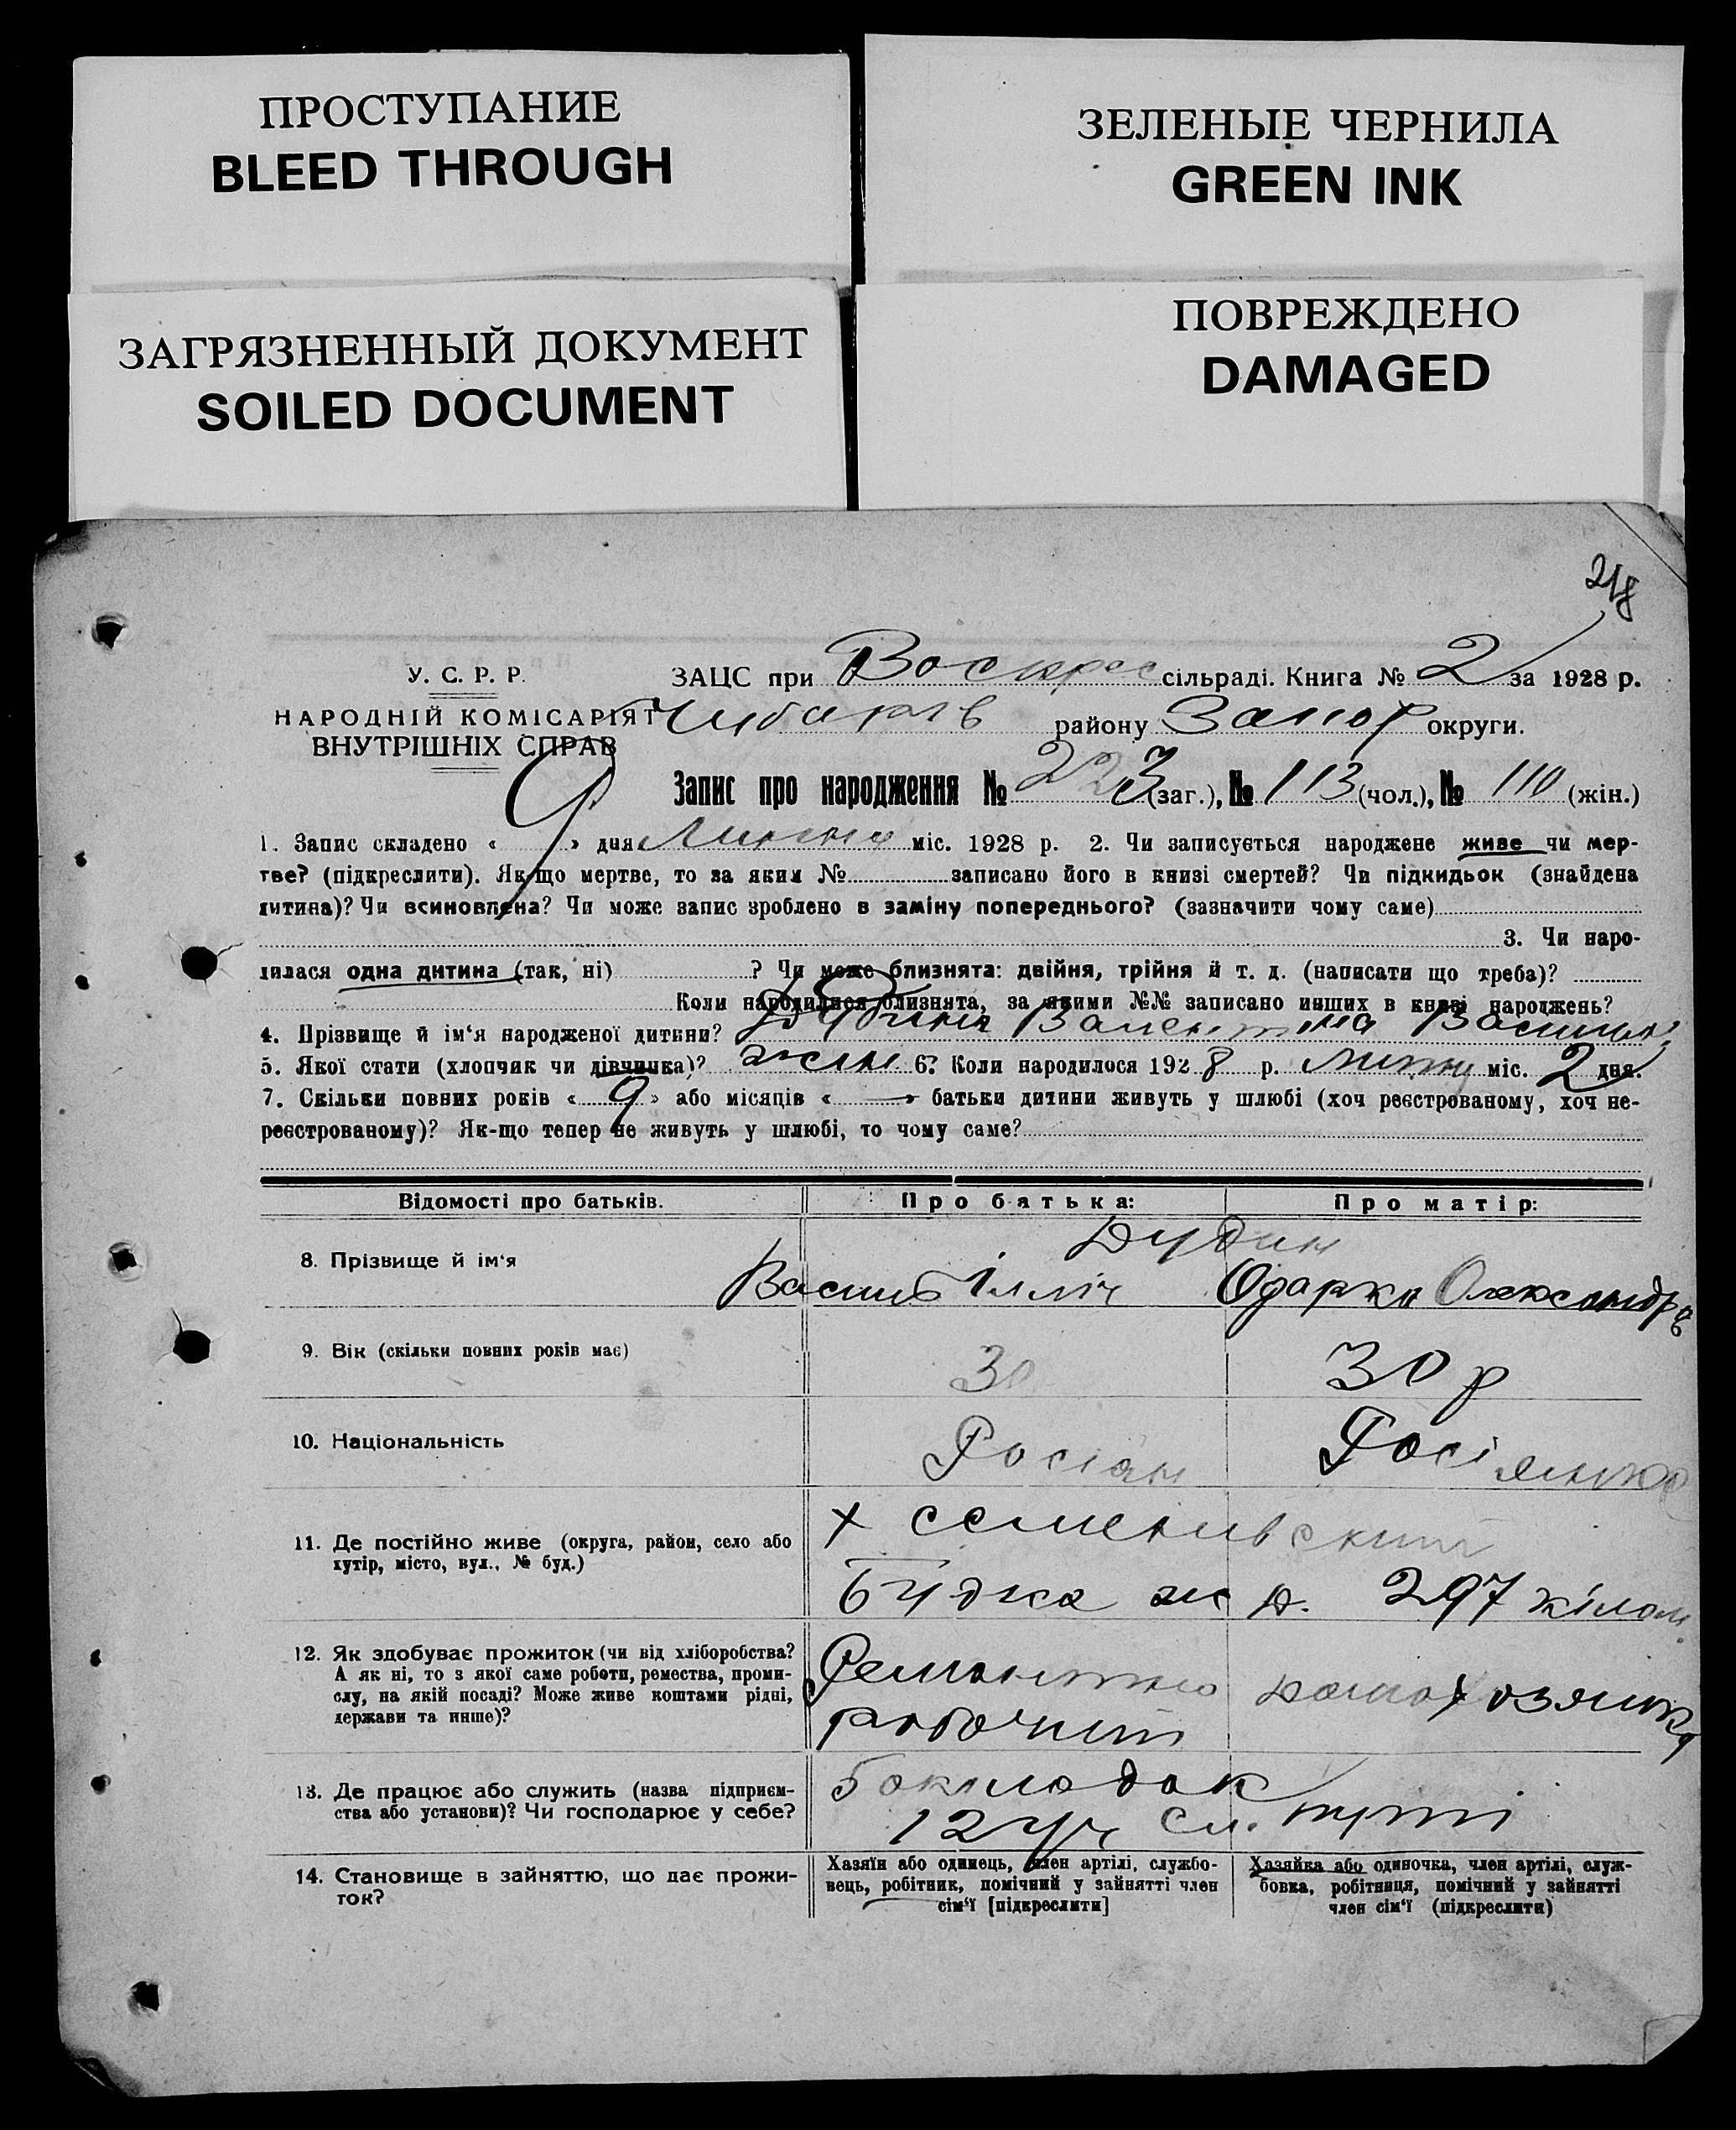 ПРОСТУПАНИЕ
BLEED THROUGH
ЗЕЛЕНЫЕ ЧЕРНИЛА
GREEN INK
ЗАГРЯЗНЕННЫЙ ДОКУМЕНТ
SOILED DOCUMENT
ПОВРЕЖДЕНО
DAMAGED
218
У. С. Р. Р.
НАРОДНІЙ КОМІСАРІЯТ
ВНУТРІШНІХ СПРАВ
ЗАЦС при Воскрес сільраді. Книга № 2 за 1928 р.
району Запор округи.
Запис про народження № 223 (заг.), № 113 (чол.), № 110 (жін.)
1. Запис складено « 9 » дня Липня міс. 1928 р. 2. Чи записується народжене живе чи мер-
тве? (підкреслити). Як-що мертве, то за яким № записано його в книзі смертей? Чи підкидьок (знайдена
дитина)? Чи всиновлена? Чи може запис зроблено в заміну попереднього? (зазначити чому саме)
3. Чи наро-
дилася одна дитина (так, ні) ? Чи може близнята: двійня, трійня й т. д. (написати що треба)?
Коли народилися близнята, за якими №№ записано инших в книзі народжень?
4. Прізвище й ім‘я народженої дитини? Дудина Валентина Васильв
5. Якої стати (хлопчик чи дівчинка)? жін 6. Коли народилося 1928 р. липня міс. 2 дня.
7. Скільки повних років « 9 » або місяців « — » батьки дитини живуть у шлюбі (хоч реєстрованому, хоч не-
реєстрованому)? Як-що тепер не живуть у шлюбі, то чому саме?
Відомості про батьків.
Про батька:
Про матір:
8. Прізвище й ім‘я
Дудин
Василь Ілліч Одарка Олександр
9. Вік (скільки повних років має)
30
30 р
10. Національність
Росіян
Росіянка
11. Де постійно живе (округа, район, село або
хутір, місто, вул., № буд.)
х семенівський
Будка ж д. 297 кілом
12. Як здобуває прожиток (чи від хліборобства?
А як ні, то з якої саме роботи, ремества, проми-
слу, на якій посаді? Може живе коштами рідні,
держави та инше)?
Ремонтно
рабочий
домохозяйка
13. Де працює або служить (назва підприєм-
ства або установи)? Чи господарює у себе?
12 уч Сл. путі
14. Становище в зайняттю, що дає прожи-
ток?
Хазяїн або одинець, член артілі, службо-
вець, робітник, помічний у зайнятті член
сім‘ї [підкреслити]
Хазяйка або одиночка, член артілі, служ-
бовка, робітниця, помічний у зайнятті
член сім‘ї (підкреслити)